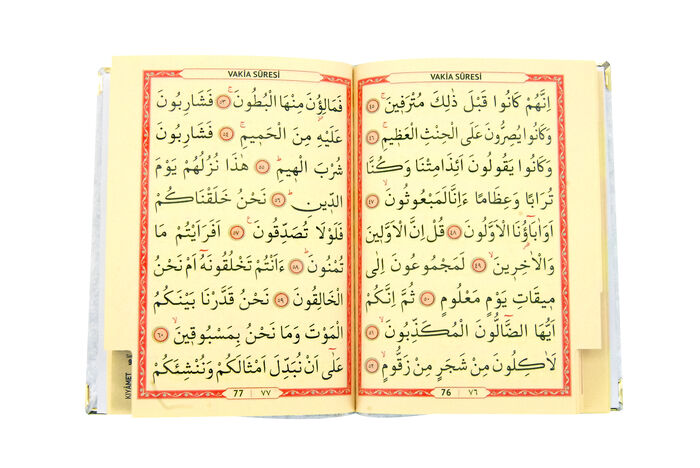 VAKİA SÛRESİ
اِنَّهُمْ كَانُوا قَبْلَ ذٰلِكَ مُتْرَفٖينَۚ ﴿٤٥﴾
وَكَانُوا يُصِرُّونَ عَلَى الْحِنْثِ الْعَظٖيمِۚ ﴿٤٦﴾
وَكَانُوا يَقُولُونَ اَئِذَا مِتْنَا وَكُنَّا
تُرَابًا وَعِظَامًا ءَاِنَّا لَمَبْعُوثُونَۙ ﴿٤٧﴾
اَوَاٰبَٓاؤُنَا الْاَوَّلُونَ ﴿٤٨﴾ قُلْ اِنَّ الْاَوَّلٖينَ
وَالْاٰخِرٖينَۙ ﴿٤٩﴾ لَمَجْمُوعُونَ اِلٰى
مٖيقَاتِ يَوْمٍ مَعْلُومٍ ﴿٥٠﴾ ثُمَّ اِنَّكُمْ
اَيُّهَا الضَّٓالُّونَ الْمُكَذِّبُونَۙ ﴿٥١﴾
لَاٰكِلُونَ مِنْ شَجَرٍ مِنْ زَقُّومٍۙ ﴿٥٢﴾
76 ٧٦
VAKİA SÛRESİ
فَمَالِؤُ۫نَ مِنْهَا الْبُطُونَۚ ﴿٥٣﴾ فَشَارِبُونَ
عَلَيْهِ مِنَ الْحَمٖيمِۚ ﴿٥٤﴾ فَشَارِبُونَ
شُرْبَ الْهٖيمِؕ ﴿٥٥﴾ هٰذَا نُزُلُهُمْ يَوْمَ
الدّٖينِؕ ﴿٥٦﴾ نَحْنُ خَلَقْنَاكُمْ
فَلَوْلَا تُصَدِّقُونَ ﴿٥٧﴾ اَفَرَاَيْتُمْ مَا
تُمْنُونَؕ ﴿٥٨﴾ ءَاَنْتُمْ تَخْلُقُونَهُٓ اَمْ نَحْنُ
الْخَالِقُونَ ﴿٥٩﴾ نَحْنُ قَدَّرْنَا بَيْنَكُمُ
الْمَوْتَ وَمَا نَحْنُ بِمَسْبُوقٖينَۙ ﴿٦٠﴾
عَلٰٓى اَنْ نُبَدِّلَ اَمْثَالَكُمْ وَنُنْشِئَكُمْ
77 ٧٧
KIYÂMET